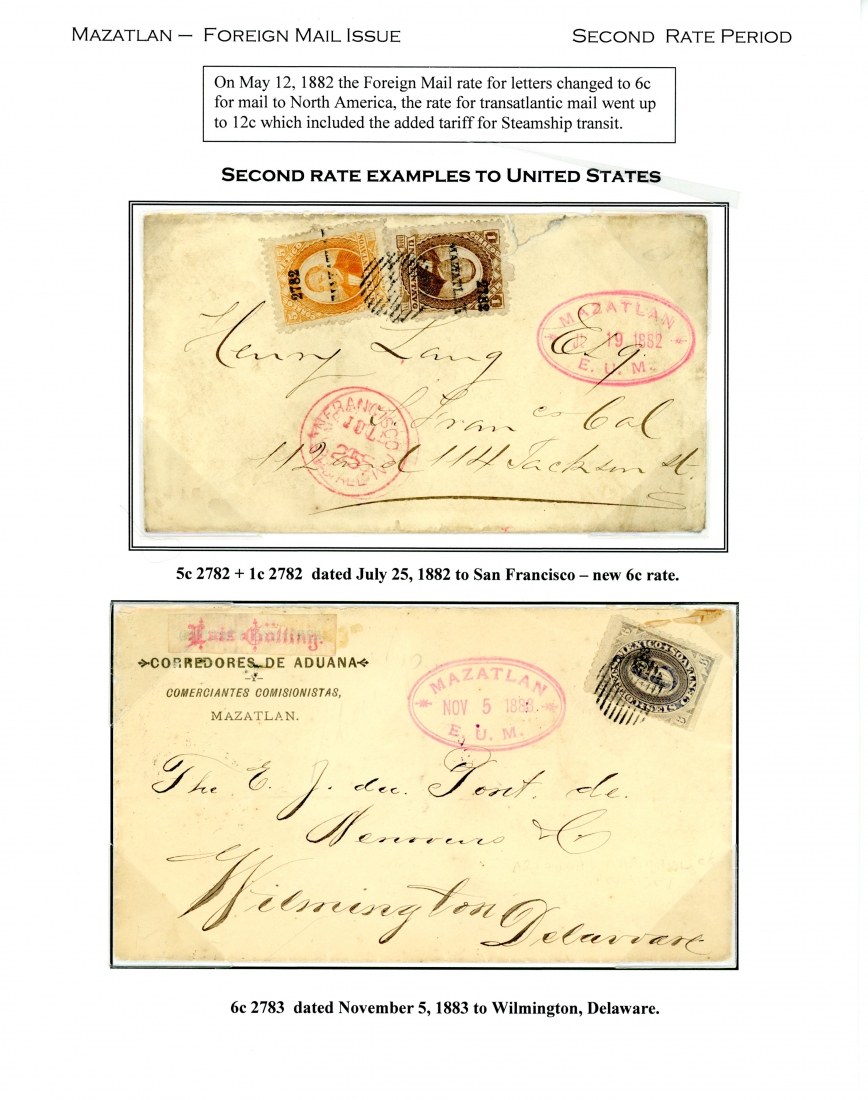 MAZATLAN – FOREIGN MAIL ISSUE
SECOND RATE PERIOD
On May 12, 1882 the Foreign Mail rate for letters changed to 6c
for mail to North America, the rate for transatlantic mail went up
to 12c which included the added tariff for Steamship transit.
SECOND RATE EXAMPLES TO UNITED STATES
2782
MAZATL
2782
MAZATLAN
19 1882
E. U. M.
Henry Lang Esq.
SAN FRANCISCO
JUL
25
S. Fran co Cal
112 and 114 Jackson St.
5c 2782 + 1c 2782 dated July 25, 1882 to San Francisco – new 6c rate.
Luis Gölling.
CORREDORES DE ADUANA
Y
COMERCIANTES COMISIONISTAS,
MAZATLAN.
MAZATLAN
NOV 5 1883
E. U. M.
The E. J. du. Pont. de.
Nemours & Co
Wilmington
Delaware
6c 2783 dated November 5, 1883 to Wilmington, Delaware.